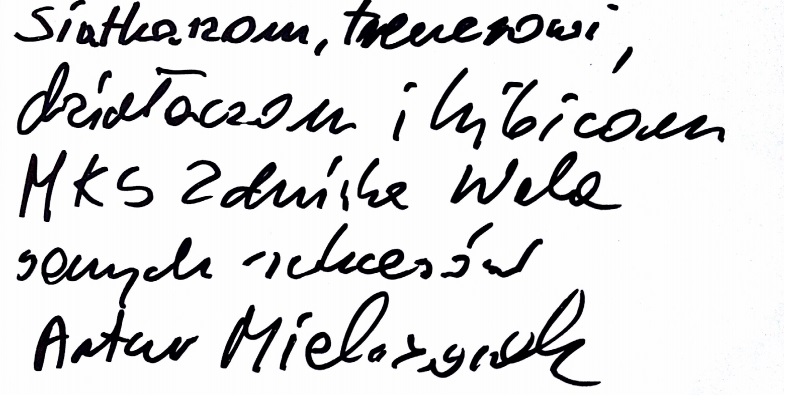 Siatkarzom, trenerowi,
działaczom i kibicom
MKS Zduńska Wola
samych sukcesów
Artur